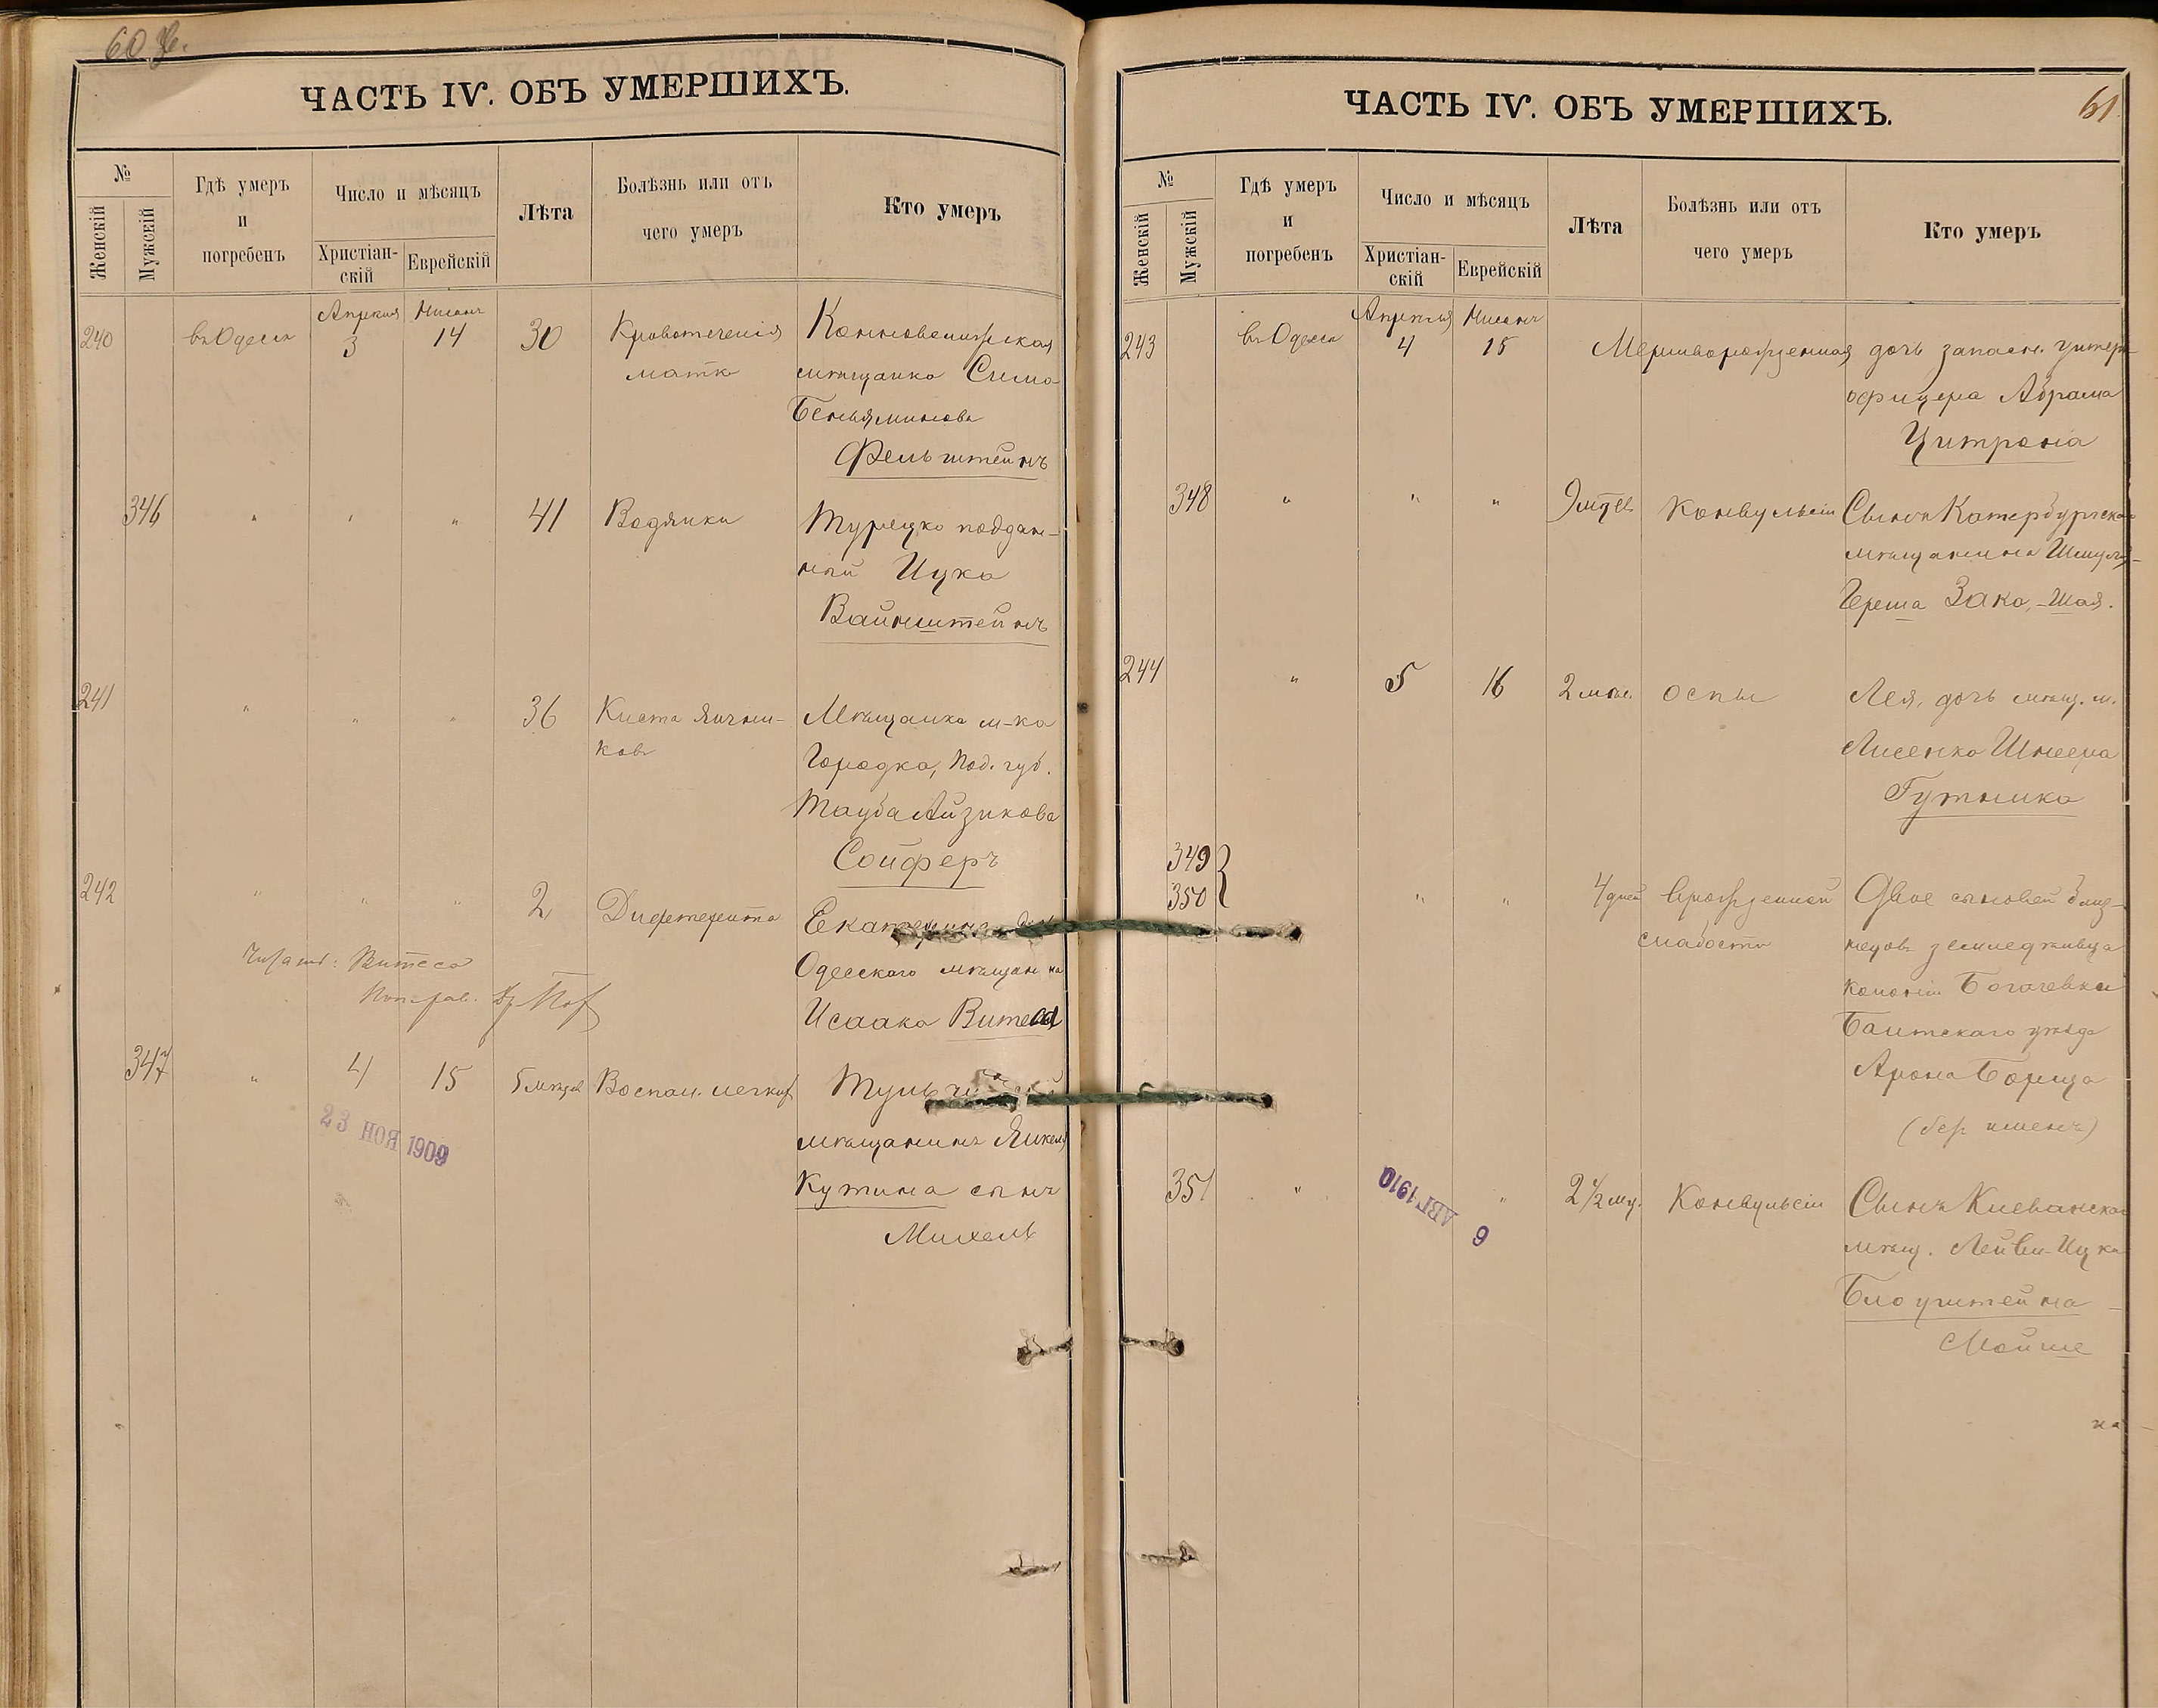 ЧАСТЬ IV. ОБЪ УМЕРШИХЪ.
№
Женскій
Мужскій
Гдѣ умеръ
и
погребенъ
Число и мѣсяцъ
Христіан-
скій
Еврейскій
Лѣта
Болѣзнь или отъ
чего умеръ
Кто умеръ
240 въ Одессѣ Апрѣля 3 Нисанъ 14 30 Кровотеченія
матк
мѣщанка Сима
Беньяминова
Фельштейнъ
346 " " " 41 Водянки Турецко поддан-
ный Ицко
Вайнштейнъ
241 " " " 36 Киста яични- Мѣщанка м-ка
ковъ Городка, Под. губ.
Тауба Айзикова
Сойферъ
242 " " " 2 Дифтерита
Одесскаго мѣщанина
Исаака Витеса
Витеса
347 " 4 15 5 мѣсяцев Воспал. легкихъ
мѣщанинъ Янкеля
Кутина сынъ
Михель
23 НОЯ 1909
ЧАСТЬ IV. ОБЪ УМЕРШИХЪ.
61
№
Женскій
Мужскій
Гдѣ умеръ
и
погребенъ
Число и мѣсяцъ
Христіан-
скій
Еврейскій
Лѣта
Болѣзнь или отъ
чего умеръ
Кто умеръ
243 въ Одессѣ Апрѣля 4 Нисанъ 15 Мертворожденная дочь запасн. унтеръ-
офицера Абрама
Цитрона
348 " " " Конвульсіи Сынъ Катербургскаго
мѣщанина Шмуля-
Герша Зака, - Шая.
244 " 5 16 2 мѣс. оспы Лея, дочь мѣщ. м.
Лисенка Шнеера
Гутника
349
350 " " 4 дней врожденной Двое сыновей близ-
слабости нецовъ земледѣльца
колоніи Богачевка
Балтскаго уѣзда
Арона Борща
(без именъ)
351 " " 2 1/2 мц. Конвульсіи Сынъ Клеванскаго
мѣщ. Лейви-Ицка
Блоуштейна -
Мойше
9 АВГ 1910